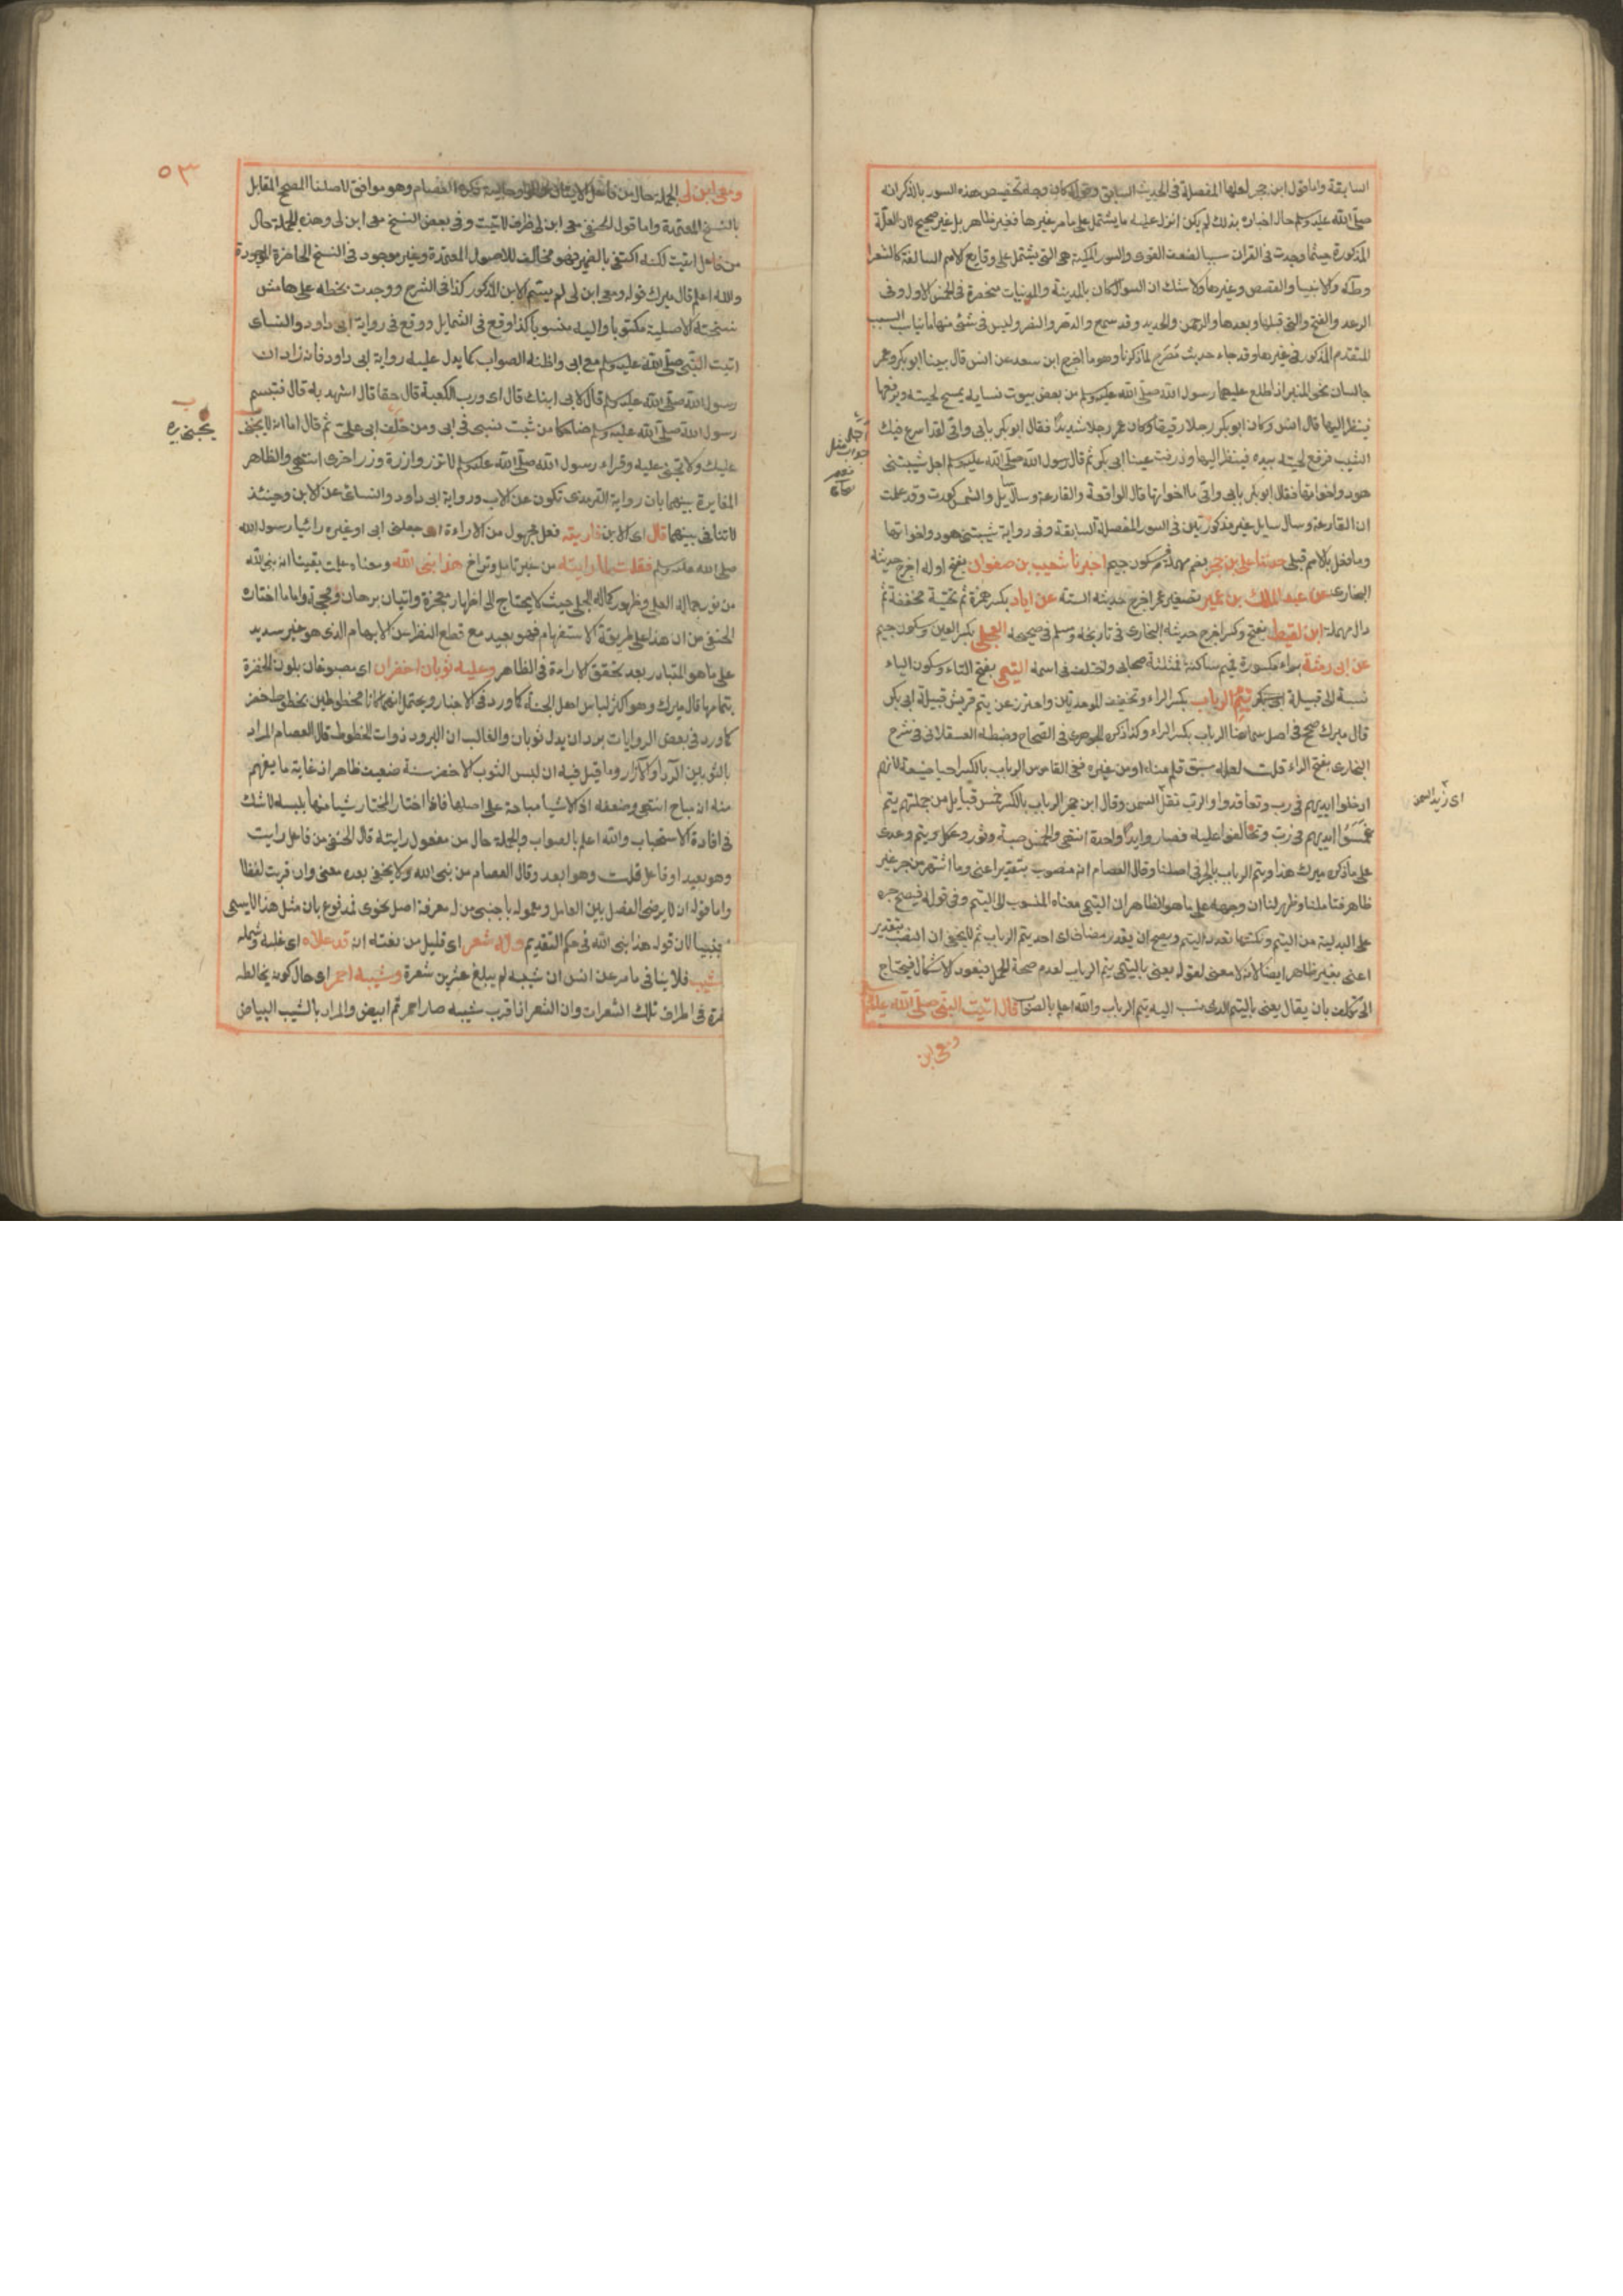 السابقة واما قول ابن حجر لعلها المفصلة في الحديث السابق وجه تخصيص هذه السور بالذكر انه
صلى الله عليه وسلم حال اخباره بذلك لم يكن انزل عليه ما يشتمل على ما مر غيرها فغير ظاهر بل غير صحيح لان العلة
المذكورة حيثما وجدت في القران سببا لضعف القوى والسور المكية هي التي يشتمل على وقايع الامم السالفة كالشعرا
وطه والانبيا والقصص وغيرها ولا شك ان السؤال كان بالمدينة والمدنيات منحصرة في الخمس الاول وفي
الرعد والفتح والتي قبلها وبعدها والرحمن والحديد وقد سمع والدهر والنصر وليس في شئ منها ما يناسب السبب
المتقدم المذكور في غيرها وقد جاء حديث مصرح لما ذكرنا وهو ما اخرج ابن سعد عن انس قال بينا ابو بكر وعمر
جالسان نحو المنبر اذ اطلع عليهما رسول الله صلى الله عليه وسلم من بعض بيوت نسايه يمسح لحيته ويرفعها
فينظر اليها قال انس وكان ابو بكر رجلا رقيقا وكان عمر رجلا شديدا فقال ابو بكر بابي وامي لقد اسرع فيك
الشيب فرفع لحيته بيده فينظر اليها وذرفت عينا ابي بكر ثم قال رسول الله صلى الله عليه وسلم اجل شيبتني
هود واخواتها فقال ابو بكر بابي وامي ما اخواتها قال الواقعة والقارعة وسال سايل والشمس كورت وقد علمت
ان القارعة وسال سايل غير مذكورتين في السور المفصلة السابقة وفي رواية شيبتني هود واخواتها
وما فعل بالامم قبلي حدثنا علي بن حجر بضم مهملة فسكون جيم اخبرنا شعيب بن صفوان بفتح اوله اخرج حديثه
البخاري عن عبد الملك بن عمير تصغير عمر اخرج حديثه الستة عن اياد بكسر همزة ثم تحتية مخففة ثم
دال مهملة ابن لقيط بفتح وكسر اخرج حديثه البخاري في تاريخه ومسلم في صحيحه العجلي بكسر العين وسكون جيم
عن ابي رمثة براء مكسورة فميم ساكنة فمثلثة صحابي واختلف في اسمه التيمي بفتح التاء وسكون الياء
نسبة الى قبيلة تيم الرباب بكسر الراء وتخفيف الموحدتين واحترز عن تيم قريش قبيلة ابي بكر
قال ميرك صحح في اصل سماعنا الرباب بكسر الراء وكذا ذكره الجوهري في الصحاح وضبطه العسقلاني في شرح
البخاري بفتح الراء قلت لعله سبق قلم منه او من غيره ففي القاموس الرباب بالكسر احيا ضبة لانهم
ادخلوا ايديهم في رب وتعاقدوا والرب ثفل السمن وقال ابن حجر الرباب بالكسر خمس قبايل من جملتهم تيم
غمسوا ايديهم في رب وتحالفوا عليه فصاروا يدا واحدة انتهى والخمس ضبة وثور وعكل وتيم وعدي
على ما ذكره ميرك هذا وتيم الرباب بالجر في اصلنا وقال العصام انه منصوب بتقدير اعني وما اشتهر من جر غير
ظاهر فتاملنا وظهر لنا ان وجهه على ما هو الظاهر ان التيمي معناه المنسوب الى التيم وفي قوله فيصح جره
على البدلية من التيم ونكتتها تعدد التيم ويصح ان يقدر مضاف اي احد تيم الرباب ثم لا يخفى ان النصب بتقدير
اعني بغير ظاهر ايضا لانه لا معنى لقوله يعني بالتيمي تيم الرباب لعدم صحة الحمل فيعود الاشكال فيحتاج
الى تكلف بان يقال يعني بالتيم الذي نسب اليه تيم الرباب والله اعلم بالصواب قال اتيت النبي صلى الله عليه وسلم
ومعي ابن
اي زبد السمن
٥٣
ومعي ابن لي الجملة حال من فاعل الاتيان وهو موافق لاصلنا المصحح المقابل
بالنسخ المعتمدة واما قول الحنفي معي ابن لي ظرف لاتيت وفي بعض النسخ معي ابن لي وهذه الجملة حال
من فاعل اتيت لكنه اكتفى بالضمير فهو مخالف للاصول المعتمدة وغير موجود في النسخ الحاضرة الموجودة
والله اعلم قال ميرك قوله ومعي ابن لي لم يسم الابن المذكور كذا في الشرح ووجدت بخطه على هامش
نسخته الاصلية مكتوبا واليه منسوبا كذا وقع في الشمايل ووقع في رواية ابي داود والنساي
اتيت النبي صلى الله عليه وسلم مع ابي واظنه الصواب كما يدل عليه رواية ابي داود فانه زاد ان
رسول الله صلى الله عليه وسلم قال لابي ابنك قال اي ورب الكعبة قال حقا قال اشهد به قال فتبسم
رسول الله صلى الله عليه وسلم ضاحكا من ثبت شبهي في ابي ومن حلف ابي علي ثم قال اما انه لا يجني
عليك ولا تجني عليه وقراء رسول الله صلى الله عليه وسلم لا تزر وازرة وزر اخرى انتهى والظاهر
المغايرة بينهما بان رواية الترمذي تكون عن الاب ورواية ابي داود والنسائي عن الابن وحينئذ
لا تنافي بينهما قال اي الابن فاريته فعل مجهول من الاراءة اي جعلني ابي او غيره رائيا رسول الله
صلى الله عليه وسلم فقلت لما رايته من غير تامل وتراخ هذا نبي الله ومعناه علمت يقينا انه نبي الله
من نور جماله العلي وظهور كماله الجلي حيث لا يحتاج الى اظهار معجزة واتيان برهان ومحجة واما ما اختاره
الحنفي من ان هذا على طريقة الاستفهام فهو بعيد مع قطع النظر من الابهام الذي هو غير سديد
على ما هو المتبادر بعد تحقق الاراءة في الظاهر وعليه ثوبان اخضران اي مصبوغان بلون الخضرة
بتمامها قال ميرك وهو اكثر لباس اهل الجنة كما ورد في الاخبار ويحتمل انهما كانا مخطوطين بخطوط خضر
كما ورد في بعض الروايات بردان بدل ثوبان والغالب ان البرود ذوات الخطوط قال العصام المراد
بالثوبين الرداء والازار وما قيل فيه ان لبس الثوب الاخضر سنة ضعيف ظاهر اذ غاية ما يفهم
منه انه مباح انتهى وضعفه اذ الاشيا مباحة على اصلها فاذا اختار المختار شيا منها بلبسه لا شك
في افادة الاستحباب والله اعلم بالصواب والجملة حال من مفعول رايته قال الحنفي من فاعل رايت
وهو بعيد او فاعل قلت وهو ابعد وقال العصام من نبي الله ولا يخفى بعده معنى وان قربت لفظا
واما قوله ان لا يرضى الفصل بين العامل ومعموله باجنبي من له معرفة اصل نحوي فمدفوع بان مثل هذا لا يسمى
جنبيا لان قوله هذا نبي الله في حكم التقديم وله شعر اي قليل من نعته انه قد علاه اي غلبه شمله
شيب فلا ينافي ما مر عن انس ان شيبه لم يبلغ عشرين شعرة وشيبه احمر اي حال كونه يخالطه
حمرة في اطراف تلك الشعرات وان الشعر اذا قرب شيبه صار احمر ثم ابيض والمراد بالشيب البياض